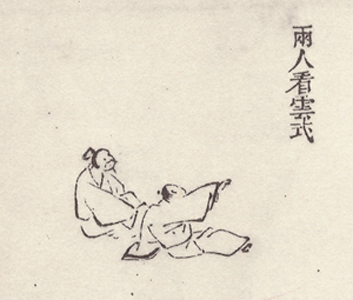 兩人看雲式